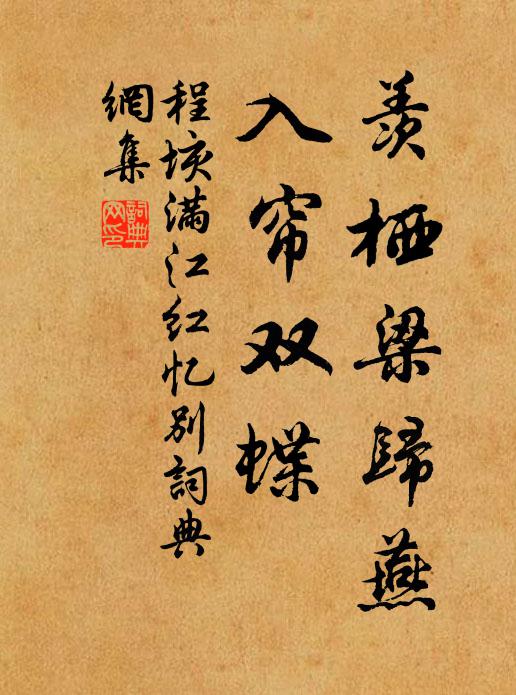 羡栖梁歸燕
入帘双蝶
程垓满江红忆别詞典
網集
詞典
网印